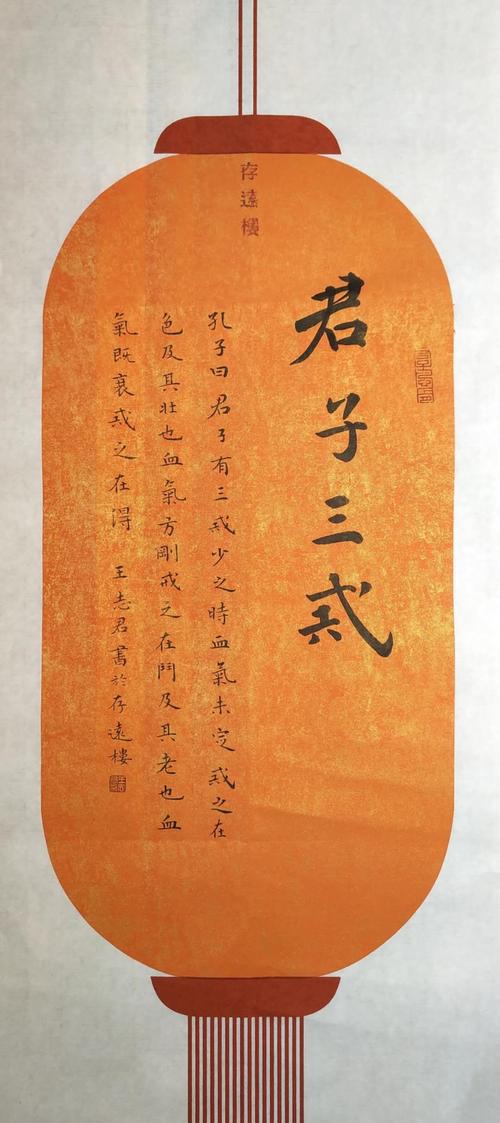 存遠樓
君子三戒
孔子曰君子有三戒少之時血氣未定戒之在
色及其壯也血氣方剛戒之在鬥及其老也血
氣既衰戒之在得 王志君書於存遠樓